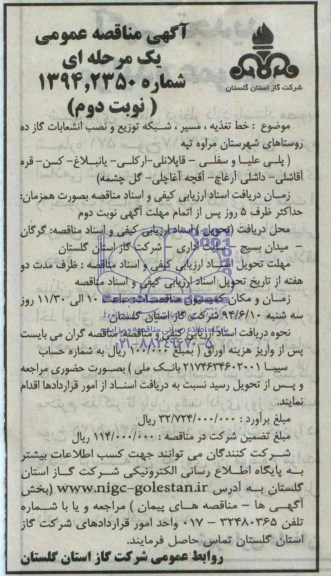 آگهی مناقصه عمومی
یک مرحله ای
شماره ۱۳۹۴,۲۳۵۰
( نوبت دوم)
شرکت گاز استان گلستان
موضوع : خط تغذیه ، مسیر ، شبکه توزیع و نصب انشعابات گاز ده
روستاهای شهرستان مراوه تپه
( پلی علیا و سفلی - قاپلانلی-ارکلی- یانبلاغ- کسن- قره
آقاشلی- داشلی آرغاچ- آقجه آغاچلی- گل چشمه)
زمان دریافت اسناد ارزیابی کیفی و اسناد مناقصه بصورت همزمان:
حداکثر ظرف ۵ روز پس از اتمام مهلت آگهی نوبت دوم
محل دریافت (تحویل) اسناد ارزیابی کیفی و اسناد مناقصه: گرگان
- میدان بسیج - اداری - شرکت گاز استان گلستان
مهلت تحویل اسناد ارزیابی کیفی و اسناد مناقصه : ظرف مدت دو
هفته از تاریخ تحویل اسناد ارزیابی کیفی و اسناد مناقصه
زمان و مکان مناقصه: ساعت ۱۰ الی ۱۱/۳۰ روز
سه شنبه ۹۴/۶/۱۰ شرکت گاز استان گلستان
نحوه دریافت اسناد ارزیابی کیفی و مناقصه: مناقصه گران می بایست
پس از واریز هزینه اوراق ( بمبلغ ۱۰۰/۰۰۰ ریال به شماره حساب
سیبا ۲۱۷۴۶۳۴۶۰۲۰۰۱ بانک ملی ) بصورت حضوری مراجعه
و پس از تحویل رسید نسبت به دریافت اسناد از امور قراردادها اقدام
نمایند.
مبلغ برآورد : ۳۲/۷۲۴/۰۰۰/۰۰۰ ریال
مبلغ تضمین شرکت در مناقصه : ۱۱۴/۰۰۰/۰۰۰ ریال
شرکت کنندگان می توانند جهت کسب اطلاعات بیشتر
به پایگاه اطلاع رسانی الکترونیکی شرکت گاز استان
گلستان به آدرس www.nigc-golestan.ir (بخش
آگهی ها - مناقصه های پیمان ) مراجعه و یا با شماره
تلفن ۳۲۴۸۰۳۶۵ - ۰۱۷ واحد امور قراردادهای شرکت گاز
استان گلستان تماس حاصل فرمایند.
روابط عمومی شرکت گاز استان گلستان